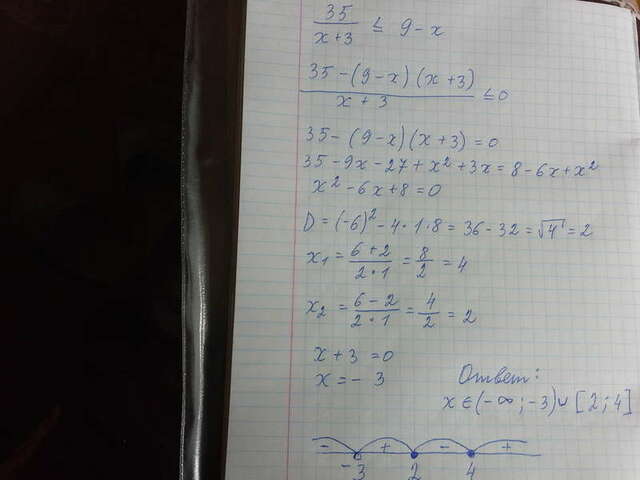 35/(x+3) ≤ 9-x
(35-(9-x)(x+3))/(x+3) ≤0
35-(9-x)(x+3)=0
35-9x-27+x²+3x=8-6x+x²
x²-6x+8=0
D=(-6)²-4·1·8=36-32=√4=2
x₁=(6+2)/(2·1)=8/2=4
x₂=(6-2)/(2·1)=4/2=2
x+3=0
x=-3
Ответ:
x∈(-∞;-3)∪[2;4]
- + - +
-3 2 4